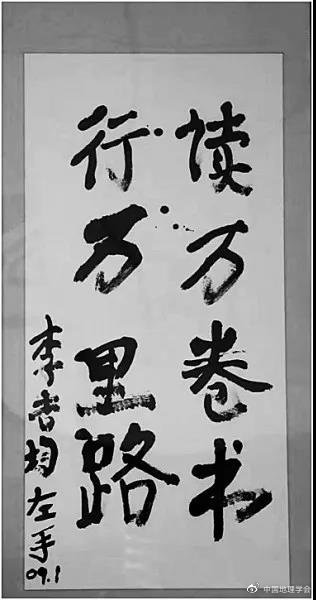 读万卷书
行万里路
李吉均左手
09.1
中国地理学会